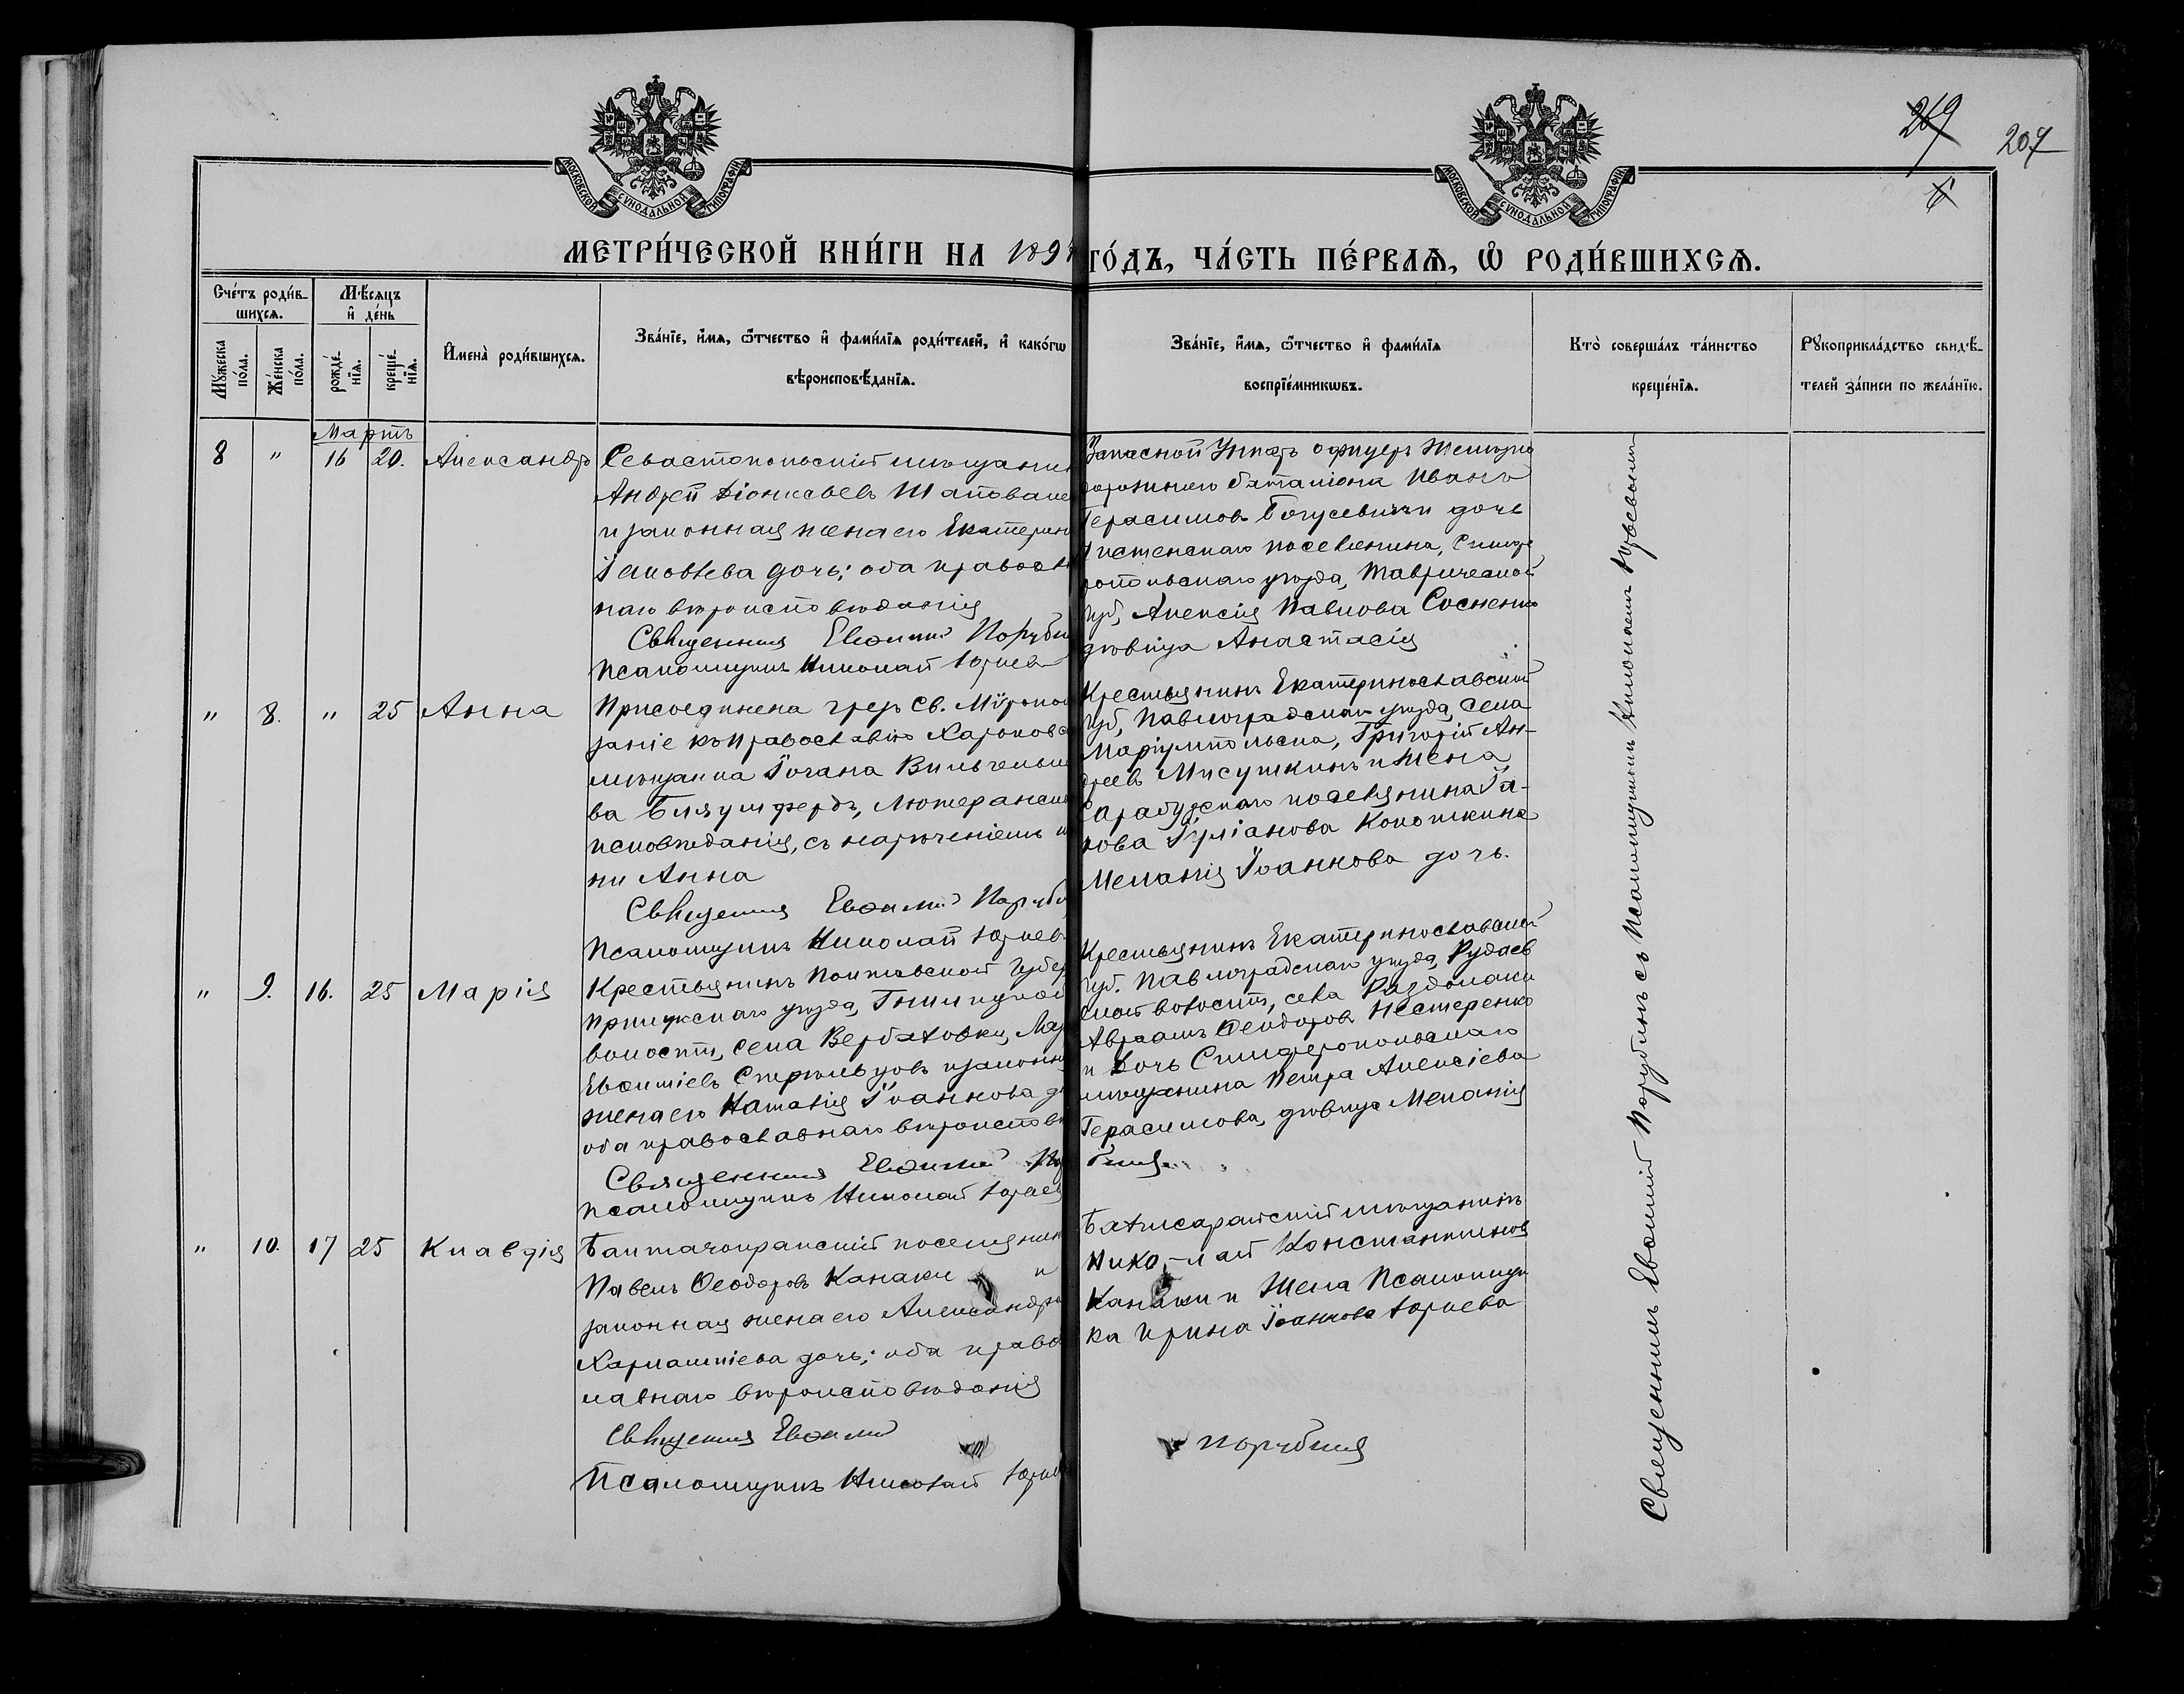 269
207
МОСКОВСКОЙ СѴНОДАЛЬНОЙ ТИПОГРАФІИ
МОСКОВСКОЙ СѴНОДАЛЬНОЙ ТИПОГРАФІИ
МЕТРИ́ЧЕСКОЙ КНИ́ГИ НА 189
ГО́ДЪ, ЧА́СТЬ ПЕ́РВАѦ, Ѡ РОДИ́ВШИХСѦ.
Сче́тъ роди́в-
шихсѧ.
Мꙋ́жеска
по́ла.
Же́нска
по́ла.
Мѣ́сѧцъ
и҆ де́нь
рожде́-
нїѧ.
креще́-
нїѧ.
И҆мена̀ роди́вшихсѧ.
Зва́нїе, и҆́мѧ, ѻ҆́тчество и҆ фами́лїѧ роди́телей, и҆ како́гѡ
вѣроисповѣ́данїѧ.
Зва́нїе, и҆́мѧ, ѻ҆́тчество и҆ фами́лїѧ
воспрїе́мникѡвъ.
Кто̀ соверша́лъ та́инство
креще́нїѧ.
Рꙋкоприкла́дство свидѣ́-
телей за́писи по жела́нїю.
Мартъ
8 " 16 20. Александръ
Севастопольскій мѣщанин
Андрей Діонисьевъ Шаповале
и законная жена его Екатерин
Іаковлева дочь; оба правосл
наго вѣроисповѣданія
Священникъ Евѳимій Поруби
Псаломщикъ Николай Юрьев
Запасной Унтеръ офицеръ Желѣзно
дорожнаго баталіона Иванъ
Герасимовъ Богусевичъ и дочь
поселянина, Симфе
ропольскаго уѣзда, Таврической
губ, Алексія Павлова Сосненко
дѣвица Анастасія
" 8. " 25 Анна
Присоединена чрезъ Св. Мѵропом
заніе къ православію Харьковс
мѣщанина Іогана Вильгельмо
ва Блязумферъ, Лютеранска
исповѣданія, съ нареченіемъ и
ни Анна
Священникъ Евѳимій Поруби
Псаломщикъ Николай Юрьевъ
Крестьянинъ Екатеринославской
губ, Павлоградскаго уѣзда, села
Маріупольска, Григорій Ан-
дреевъ Мисушкинъ и жена
Сарабузскаго поселянина Іа-
кова Іуліанова Коношкина
Меланія Іоаннова дочь.
" 9. 16. 25 Марія
Крестьянинъ Полтавской Губер
Прилукскаго уѣзда, Гнилицкой
волости, села Вербаховки, Мар
Евѳиміевъ Стрѣльцовъ и законн
жена его Наталія Іоаннова д
оба православнаго вѣроисповѣ
Священникъ Евѳимій По
Псаломщикъ Николай Юрьев
Крестьянинъ Екатеринославской
губ. Павлоградскаго уѣзда, Рудаев
ской волости, села Раздолаки
Авраамъ Ѳеодоровъ Нестеренко
и Дочь Симферопольскаго
мѣщанина Петра Алексіева
Герасимова, дѣвица Меланія
" 10. 17 25 Клавдія
Баитачокракскій поселянин
Павелъ Ѳеодоровъ Канаки и
законная жена его Александра
Харлампіева дочь; оба правос
лавнаго вѣроисповѣданія
Священникъ Евѳимій
Псаломщикъ Николай Юрьев
Бахчисарайскій мѣщанинъ
Нико-лай Константиновъ
Канаки и Жена Псаломщи
ка Ирина Іоаннова Юрьева
Порубинъ
Священникъ Евѳимій Порубинъ съ Псаломщикомъ Николаемъ Юрьевымъ